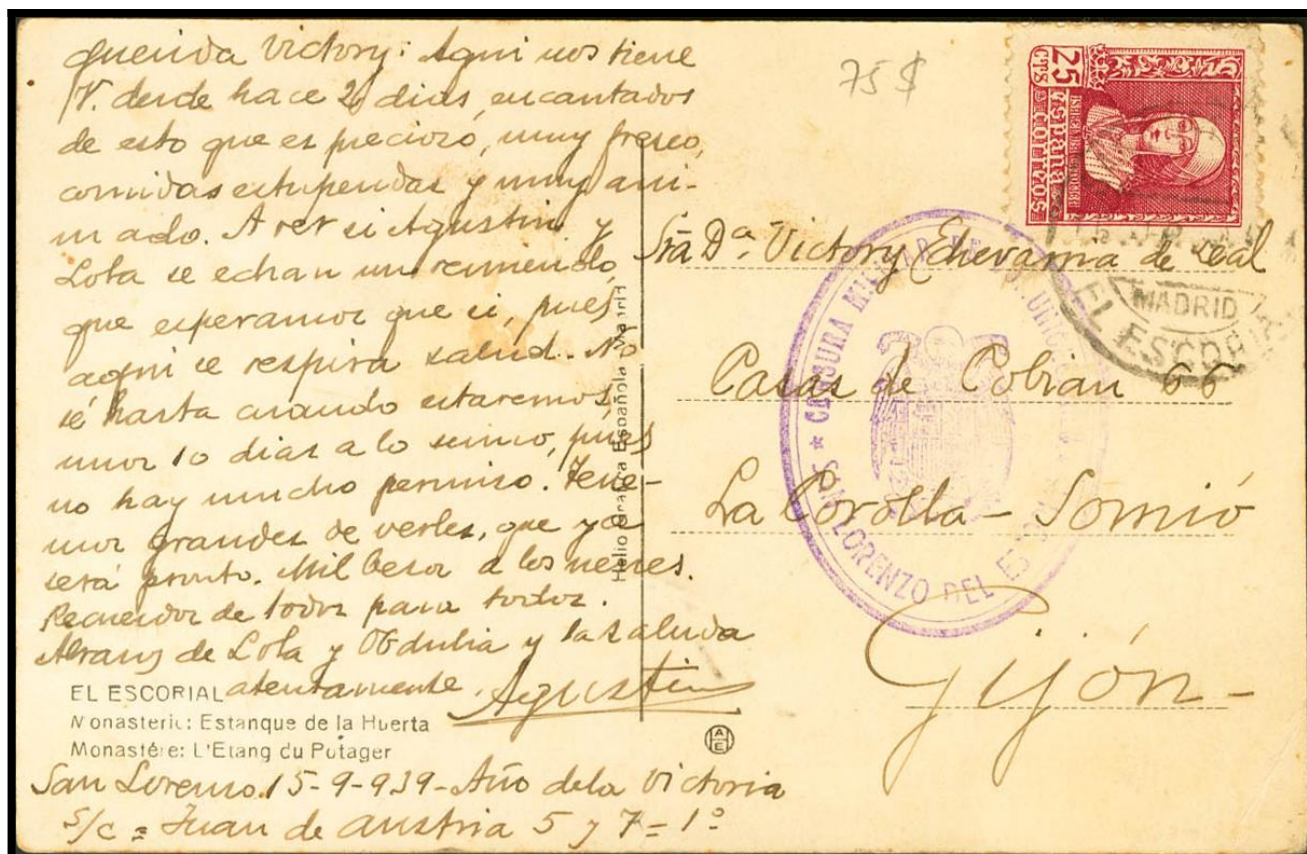 querida Victory: Aqui nos tiene
V. desde hace 20 dias, encantados
de esto que es precioso, muy fresco,
comidas estupendas y muy ani-
mado. A ver si Agustin y
Lola se echan un remiendo,
que esperamos que si, pues
aqui se respira salud. No
sé hasta cuando estaremos,
unos 10 dias a lo sumo, pues
no hay mucho permiso. Tene-
mos grandes de verles, que ya
será pronto. Mil besos a los nenes.
Recuerdos de todos para todos.
Abrazos de Lola y Obdulia y la saluda
atentamente. Agustin
EL ESCORIAL
Monasterio: Estanque de la Huerta
Monastére: L'Etang du Potager
San Lorenzo 15-9-939 - Año de la Victoria
S/c = Juan de Austria 5 y 7 = 1º
Helio Gráfica Española Madrid
AE
75 $
25 CTS
España
CORREOS
MADRID
EL ESCORIAL
CENSURA MILITAR
SAN LORENZO DEL ESCORIAL
Sra Dª. Victory Echevarria de Leal
Casas de Cobian 66
La Corolla - Somió
Gijón -